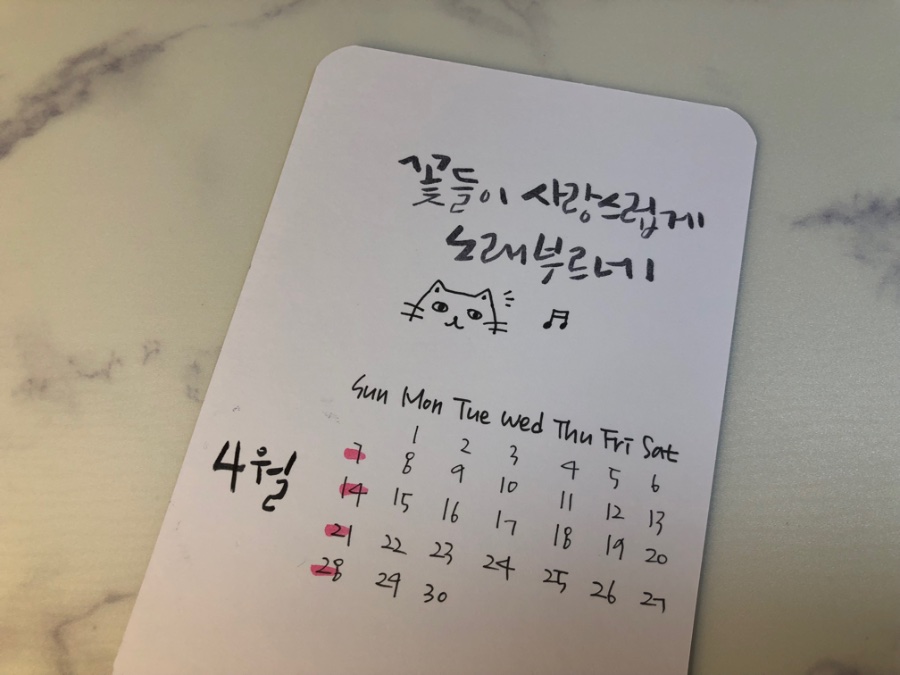 꽃들이 사랑스럽게
노래부르네
Sun Mon Tue wed Thu Fri Sat
1 2 3 4 5 6
4월
7 8 9 10 11 12 13
14 15 16 17 18 19 20
21 22 23 24 25 26 27
28 29 30